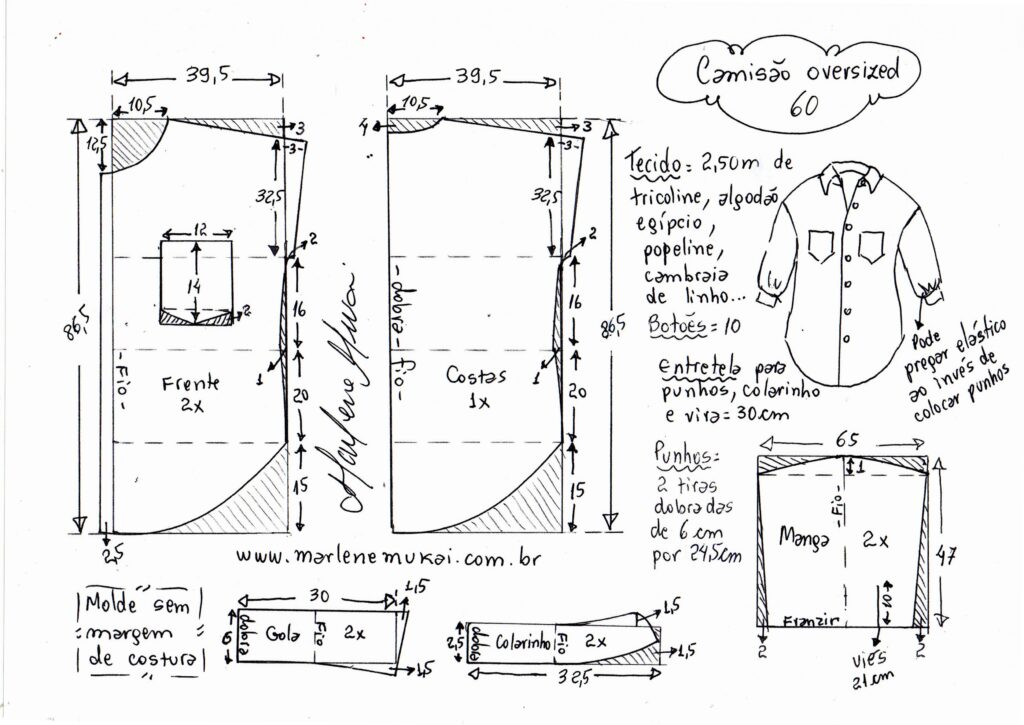 Camisão oversized
60
39,5
10,5
12,5
3
-3-
32,5
2
12
14
2
16
1
86,5
-Fio-
Frente
2x
20
15
2,5
39,5
10,5
4
3
-3-
32,5
2
-dobra-
-Fio-
16
1
86,5
Costas
1x
20
15
Marlene Mukai
www.marlenemukai.com.br
Tecido= 2,50m de
tricoline, algodão
egípcio,
popeline,
cambraia
de linho...
Botões= 10
Entretela para
punhos, colarinho
e vira= 30cm
Punhos=
2 tiras
dobradas
de 6cm
por 24,5cm
Pode
pregar elástico
ao invés de
colocar punhos
65
1
-Fio-
Manga 2x
47
-10-
Franzir
2
2
viés
21cm
Molde sem
margem
de costura
30
1,5
6
dobra
Gola
Fio
2x
1,5
1,5
2,5
dobra
Colarinho
Fio
2x
1,5
32,5